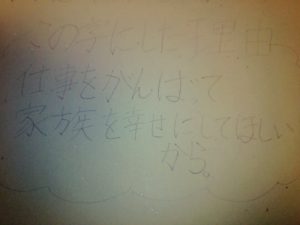 この字にした理由
仕事をがんばって
家族を幸せにしてほしい
から。